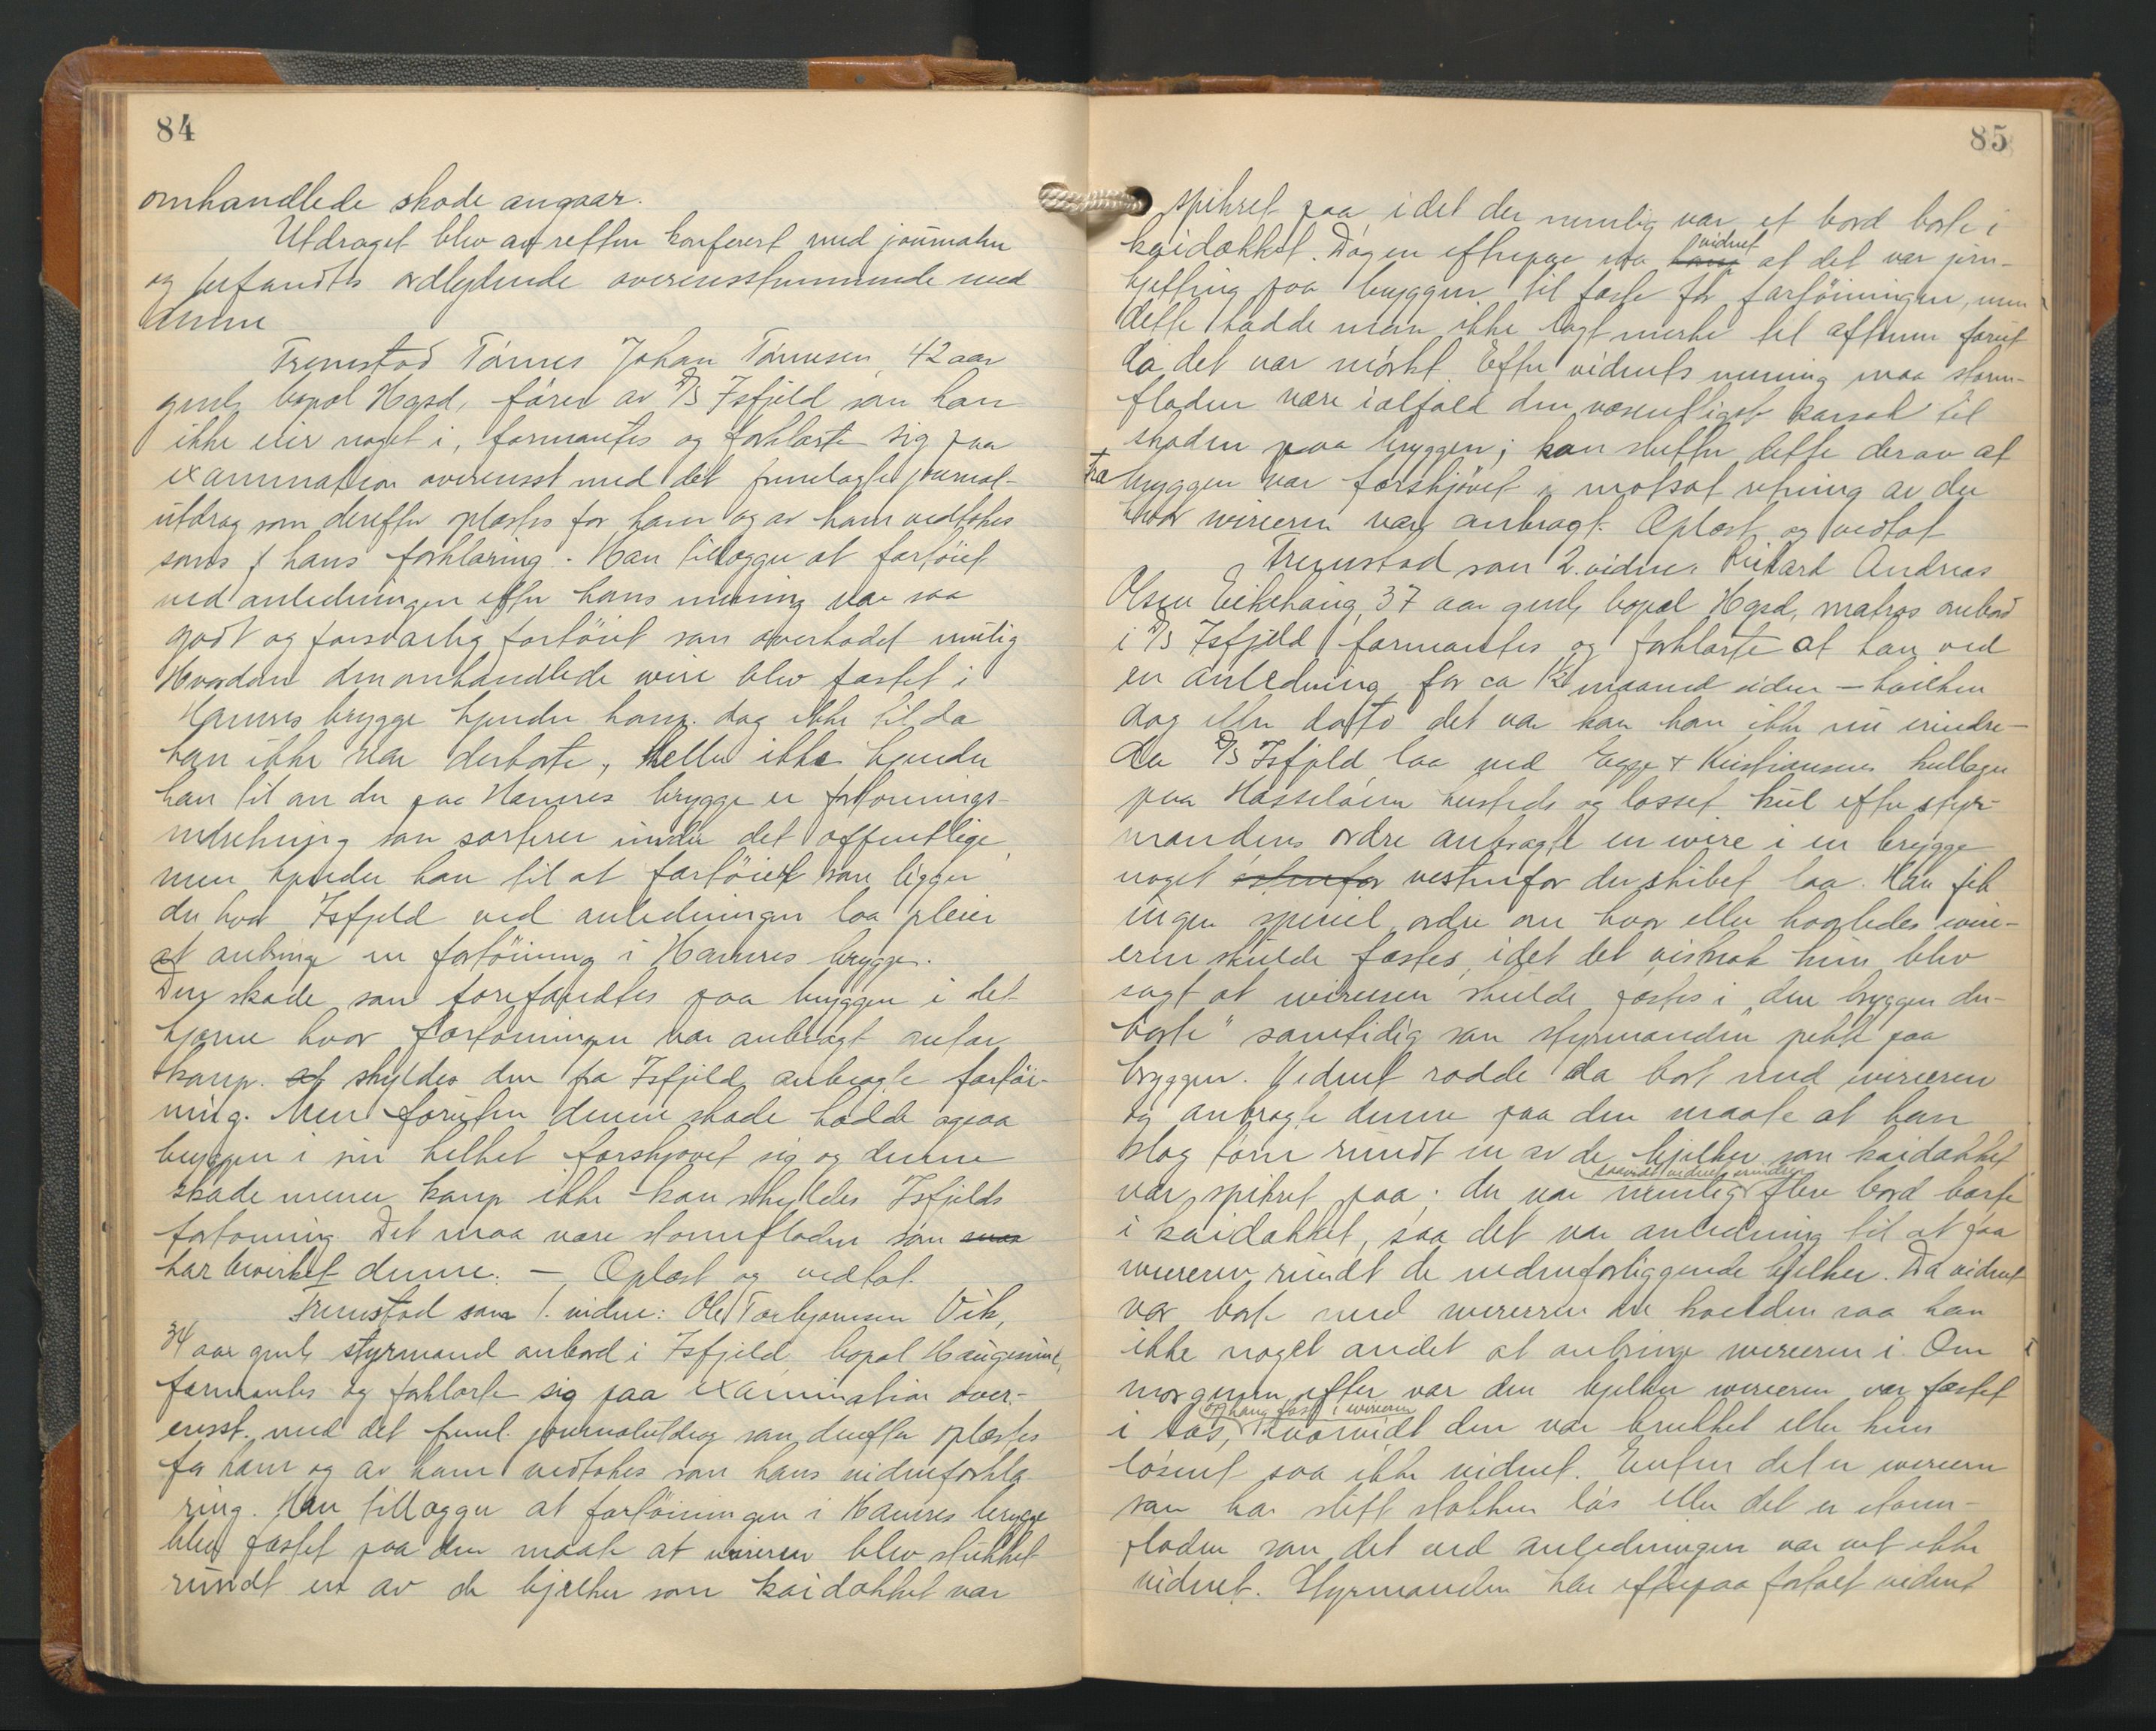 84
omhandlede skade angaar.
Utdraget blev av retten konferert med journalen
og befandtes ordlydende overensstemmende med
denne
Fremstod Tönnes Johan Tönnesen, 42 aar
gml, bopæl Hgsd, förer av D/S Isfjeld som han
ikke eier noget i, formantes og forklarte sig paa
examination overensst med det fremlagte journal-
utdrag som derefter oplæstes for ham og av ham vedtokes
som hans forklaring. Han tillægger at fartöiet
ved anledningen efter hans mening var saa
godt og forsvarlig fortöiet som overhodet mulig
Hvordan den omhandlede wire blev fæstet i
Hamres brygge kjender komp. dog ikke til da
han ikke var derborte, heller ikke kjender
han til om der paa Hamres brygge er fortöinings-
indretning som sorterer under det offentlige,
men kjender han til at fartöier som ligger
der hvor Isfjeld ved anledningen laa pleier
at anbringe en fortöining i Hamres brygge.
Den skade som forefandtes paa bryggen i det
hjörne hvor fortöiningen var anbragt antar
komp. at skyldes den fra Isfjeld anbragte fortöi-
ning. Men foruten denne skade hadde ogsaa
bryggen i sin helhet forskjövet sig og denne
skade mener komp ikke kan skyldes Isfjelds
fortöining. Det maa være stormfloden som
har bevirket denne. — Oplæst og vedtat.
Fremstod som 1. vidne: Ole Torbjörnsen Vik,
34 aar gml, styrmand ombord i Isfjeld, bopæl Haugesund,
formantes og forklarte sig paa examination over-
ensst. med det freml. journalutdrag som derefter oplæstes
for ham og av ham vedtokes som hans vidneforkla
ring. Han tillægger at fortöiningen i Hamres brygge
blev fæstet paa den maate at wireren blev stukket
rundt en av de bjelker som kaidækket var
85
spikret paa idet der nemlig var et bord borte i
kaidækket. Dagen efterpaa saa hans vidnet at det var jern-
kjetting paa bryggen til fæste for fortöiningen, men
dette hadde man ikke lagt merke til aftenen forut
da det var mörkt. Efter vidnets mening maa storm-
floden være ialfald den væsentligste aarsak til
skaden paa bryggen; han slutter dette derav at
bryggen var forskjövet i motsat retning av der
hvor wireren var anbragt. Oplæst og vedtat
Fra
Fremstod som 2. vidne: Rikard Andreas
Olsen Eikehaug, 37 aar gml, bopæl Hgsd, matros ombord
i D/S Isfjeld formantes og forklarte at han ved
en anledning for ca 1½ maaned siden — hvilken
dag eller dato det var kan han ikke nu erindre —
da D/S Isfjeld laa ved Egge & Kristiansens kullager
paa Hasselöen hersteds og losset kul efter styr-
mandens ordre anbragte en wire i en brygge
noget östenfor vestenfor der skibet laa. Han fik
ingen speciel ordre om hvor eller hvorledes wire-
eren skulde fæstes, idet det vistnok kun blev
sagt at wireren skulde fæstes i „den bryggen der-
borte" samtidig som styrmanden pekte paa
bryggen. Vidnet rodde da bort med wireren
og anbragte denne paa den maate at han
slog törn rundt en av de bjelker som kaidækket
var spikret paa; der var nemlig saavidt vidnet erindrer flere bord borte
i kaidækket, saa det var anledning til at faa
wireren rundt de nedenforliggende bjelker. Da vidnet
var borte med wireren om kvelden saa han
ikke noget andet at anbringe wireren i. Om
morgenen efter var den bjelken wireren var fæstet
i lös, og hang fast i wireren hvorvidt den var brukket eller kun
lösnet saa ikke vidnet. Enten det er wireren
som har slitt stokken lös eller det er storm-
floden som det ved anledningen var vet ikke
vidnet. Styrmanden har efterpaa fortalt vidnet